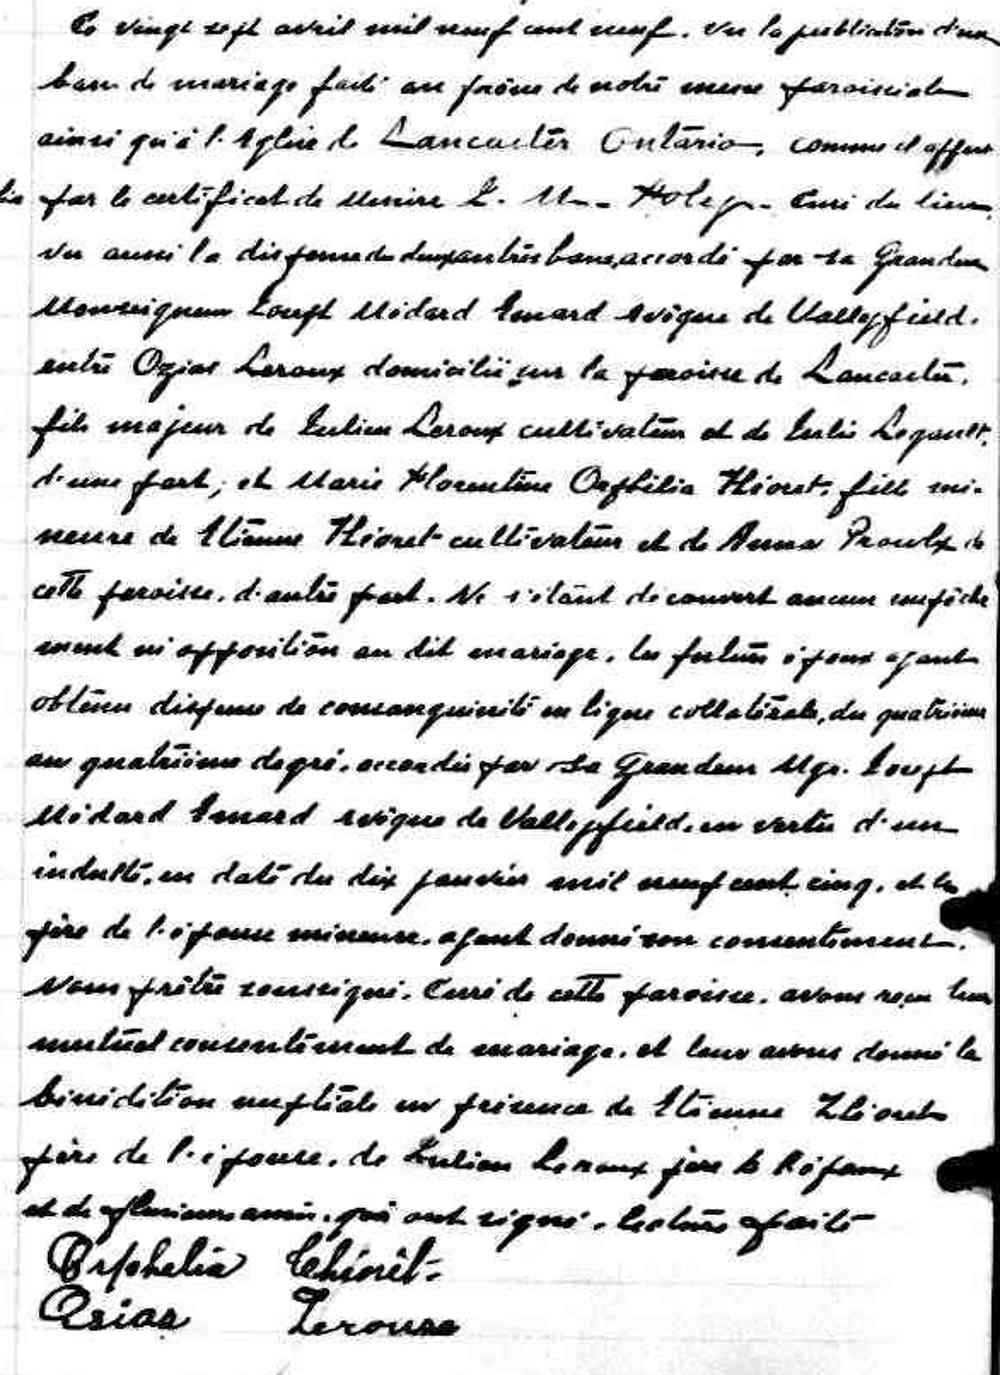 Ce vingt sept avril mil neuf cent neuf. Vu la publication d'un
ban de mariage faite au prône de notre messe paroissiale
ainsi qu'à l'Eglise de Lancaster Ontario, comme il appert
par le certificat de Messire Curé du lieu,
vu aussi la dispense de deux autres bans, accordé par Sa Grandeur
Monseigneur Joseph Médard Emard évêque de Valleyfield.
entre Ozias Leroux domicilié sur la paroisse de Lancaster.
fils majeur de Julien Leroux cultivateur et de Julie Legault.
d'une part; et Marie Florentine Orphilia Théoret. fille mi-
neure de Etienne Théoret cultivateur et de Anna Proulx de
cette paroisse. d'autre part. Ne s'étant découvert aucun empêche
ment ni opposition au dit mariage. les futurs époux ayant
obtenu dispense de consanguinité en ligne collatérale, du quatrième
au quatrième degré. accordée par Sa Grandeur Mgr. Joseph
Médard Emard évêque de Valleyfield. en vertu d'un
indulte. en date du dix janvier mil neuf cent cinq. et le
père de l'épouse mineure. ayant donné son consentement.
Nous prêtre soussigné. Curé de cette paroisse. avons reçu leur
mutuel consentement de mariage. et leur avons donné la
bénédiction nuptiale en présence de Etienne Théoret
père de l'épouse. de Julien Leroux père de l'époux
et de plusieurs amis. qui ont signé. lecture faite
Orphelia Théorêt.
Osias Leroux